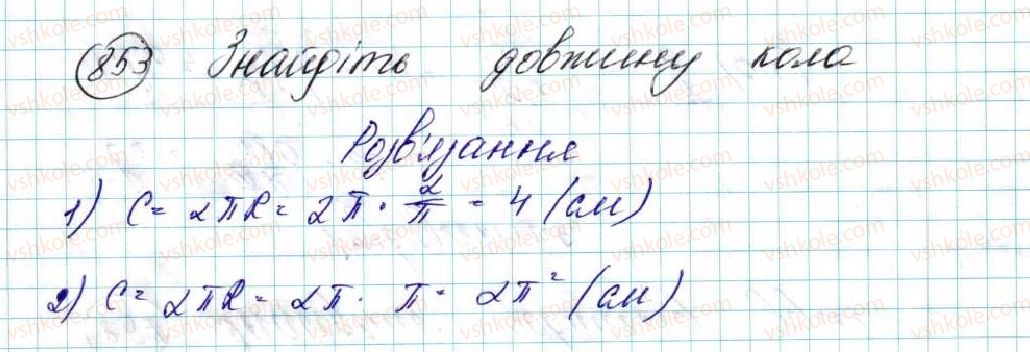 853 Знайдіть довжину кола
Розв'язання
1) C = 2πR = 2π · 2/π = 4 (см)
2) C = 2πR = 2π · π = 2π² (см)